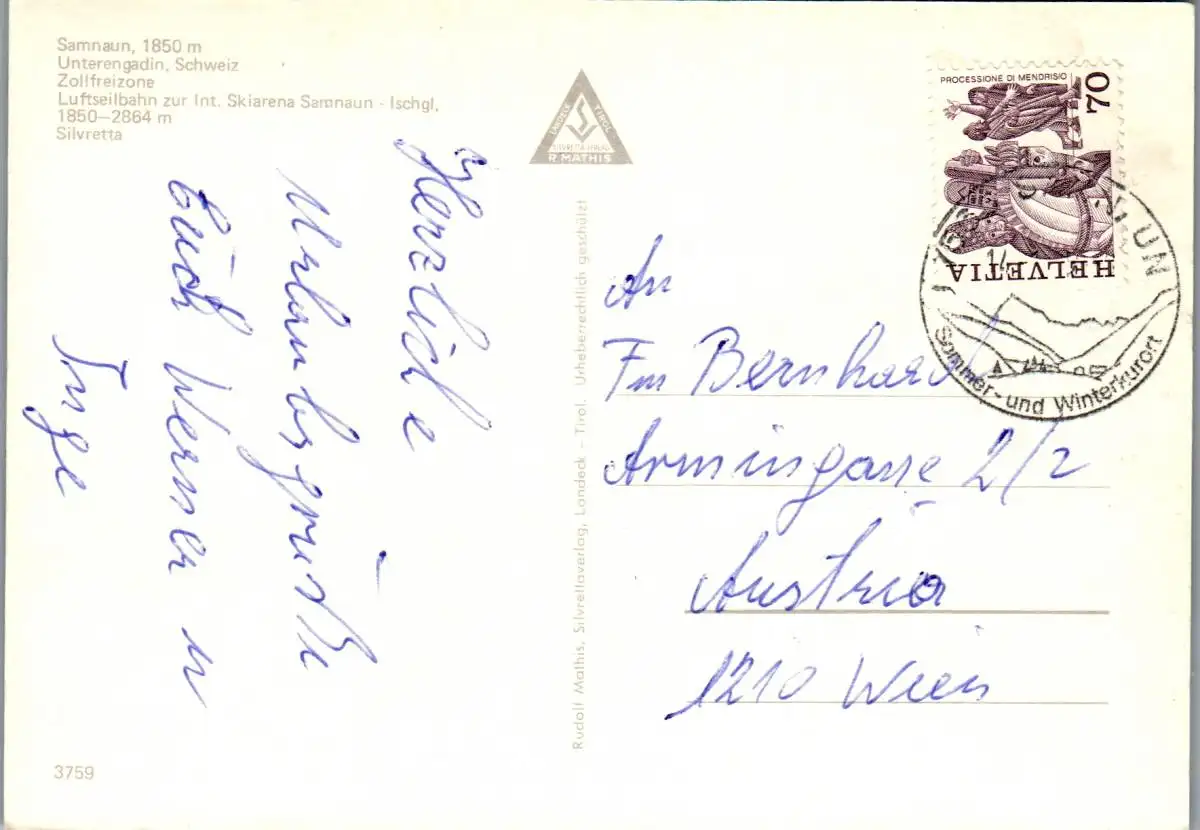 Samnaun, 1850 m
Unterengadin, Schweiz
Zollfreizone
Luftseilbahn zur Int. Skiarena Samnaun - Ischgl,
1850–2864 m
Silvretta
Herzliche
Urlaubsgrüße
Euch Werner u
Inge
3759
LANDECK TIROL
SILVRETTA-VERLAG
R. MATHIS
Rudolf Mathis, Silvrettaverlag, Landeck – Tirol. Urheberrechtlich geschützt
PROCESSIONE DI MENDRISIO
70
HELVETIA
Sommer- und Winterkurort
An
Fm Bernhard
Armingasse 2/2
Austria
1210 Wien